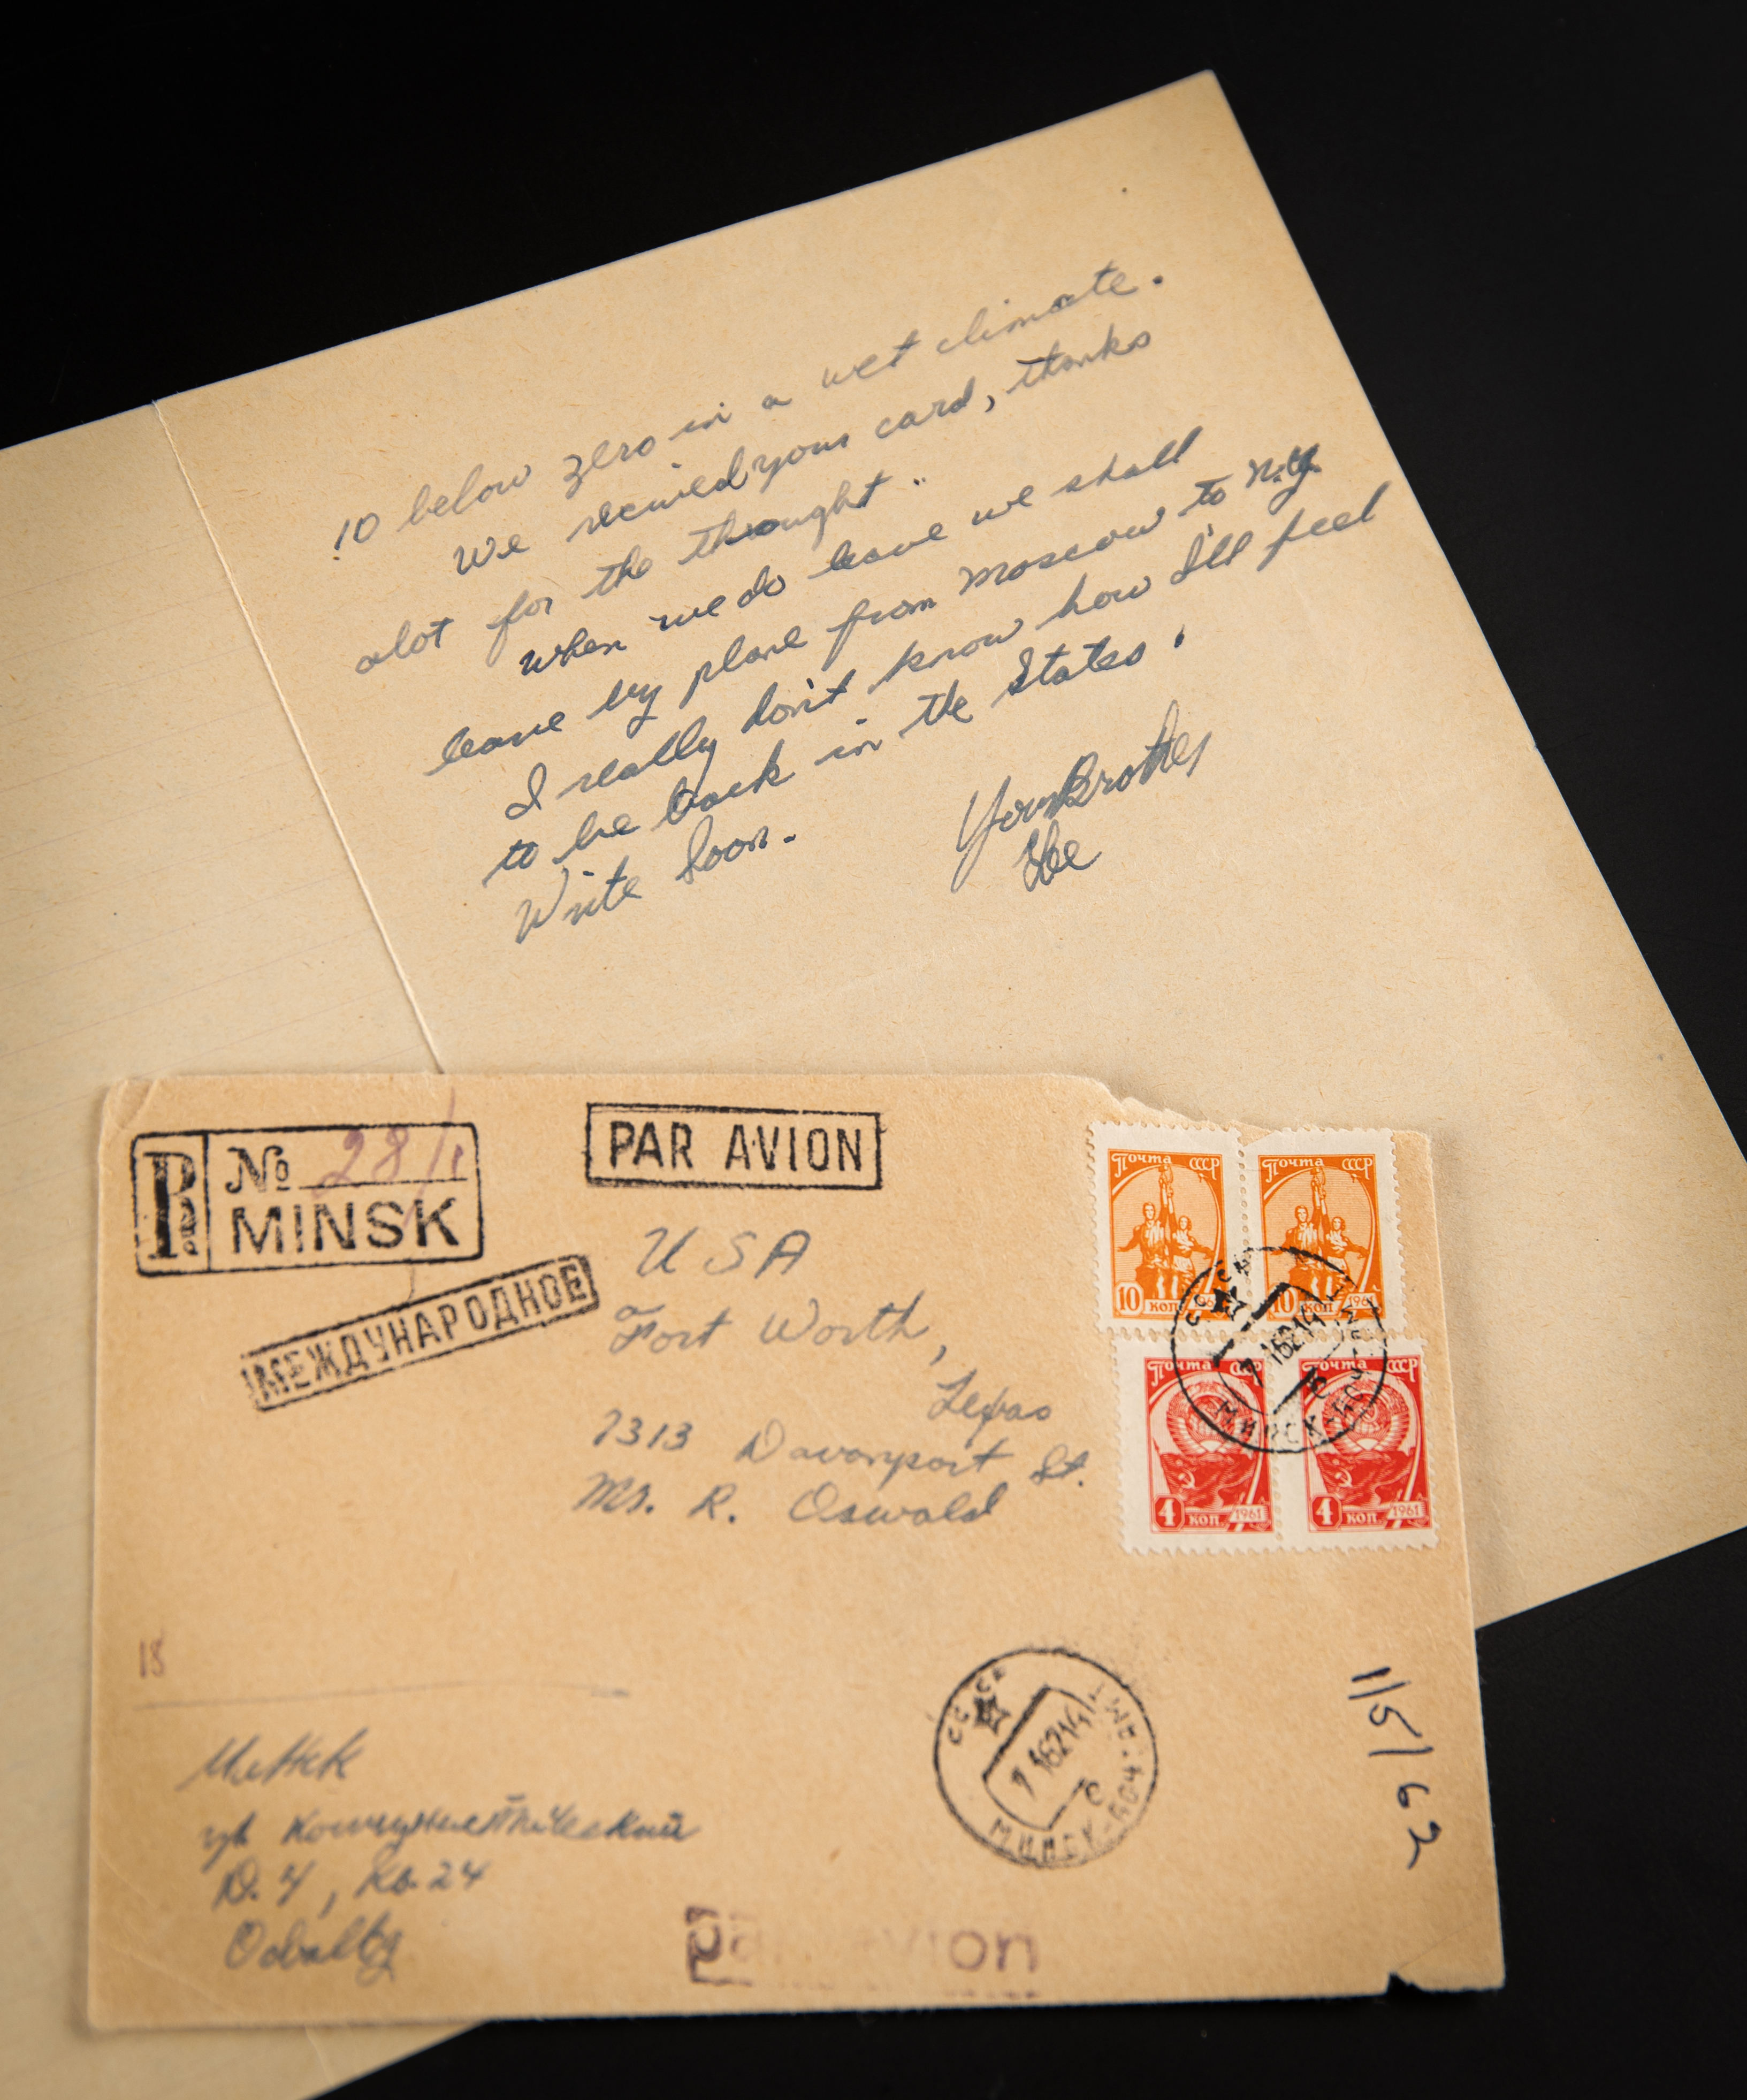 10 below zero in a wet climate.
We recived your card, thanks
alot for the thought..
when we do leave we shall
leave by plane from Moscow to N.Y.
I really don't know how I'll feel
to be back in the States.
Write Soon.
Your Brother
Lee
R № 28/1
MINSK
PAR AVION
МЕЖДУНАРОДНОЕ
USA
Fort Worth,
Texas
7313 Davenport St.
Mr. R. Oswald
Почта СССР
10 коп. 1961
Почта СССР
10 коп. 1961
Почта СССР
4 коп. 1961
Почта СССР
4 коп. 1961
СССР
МИНСК
18
СССР
МИНСК
1/5/62
Минск
ул Коммунистический
Д. 4, кв. 24
Par avion